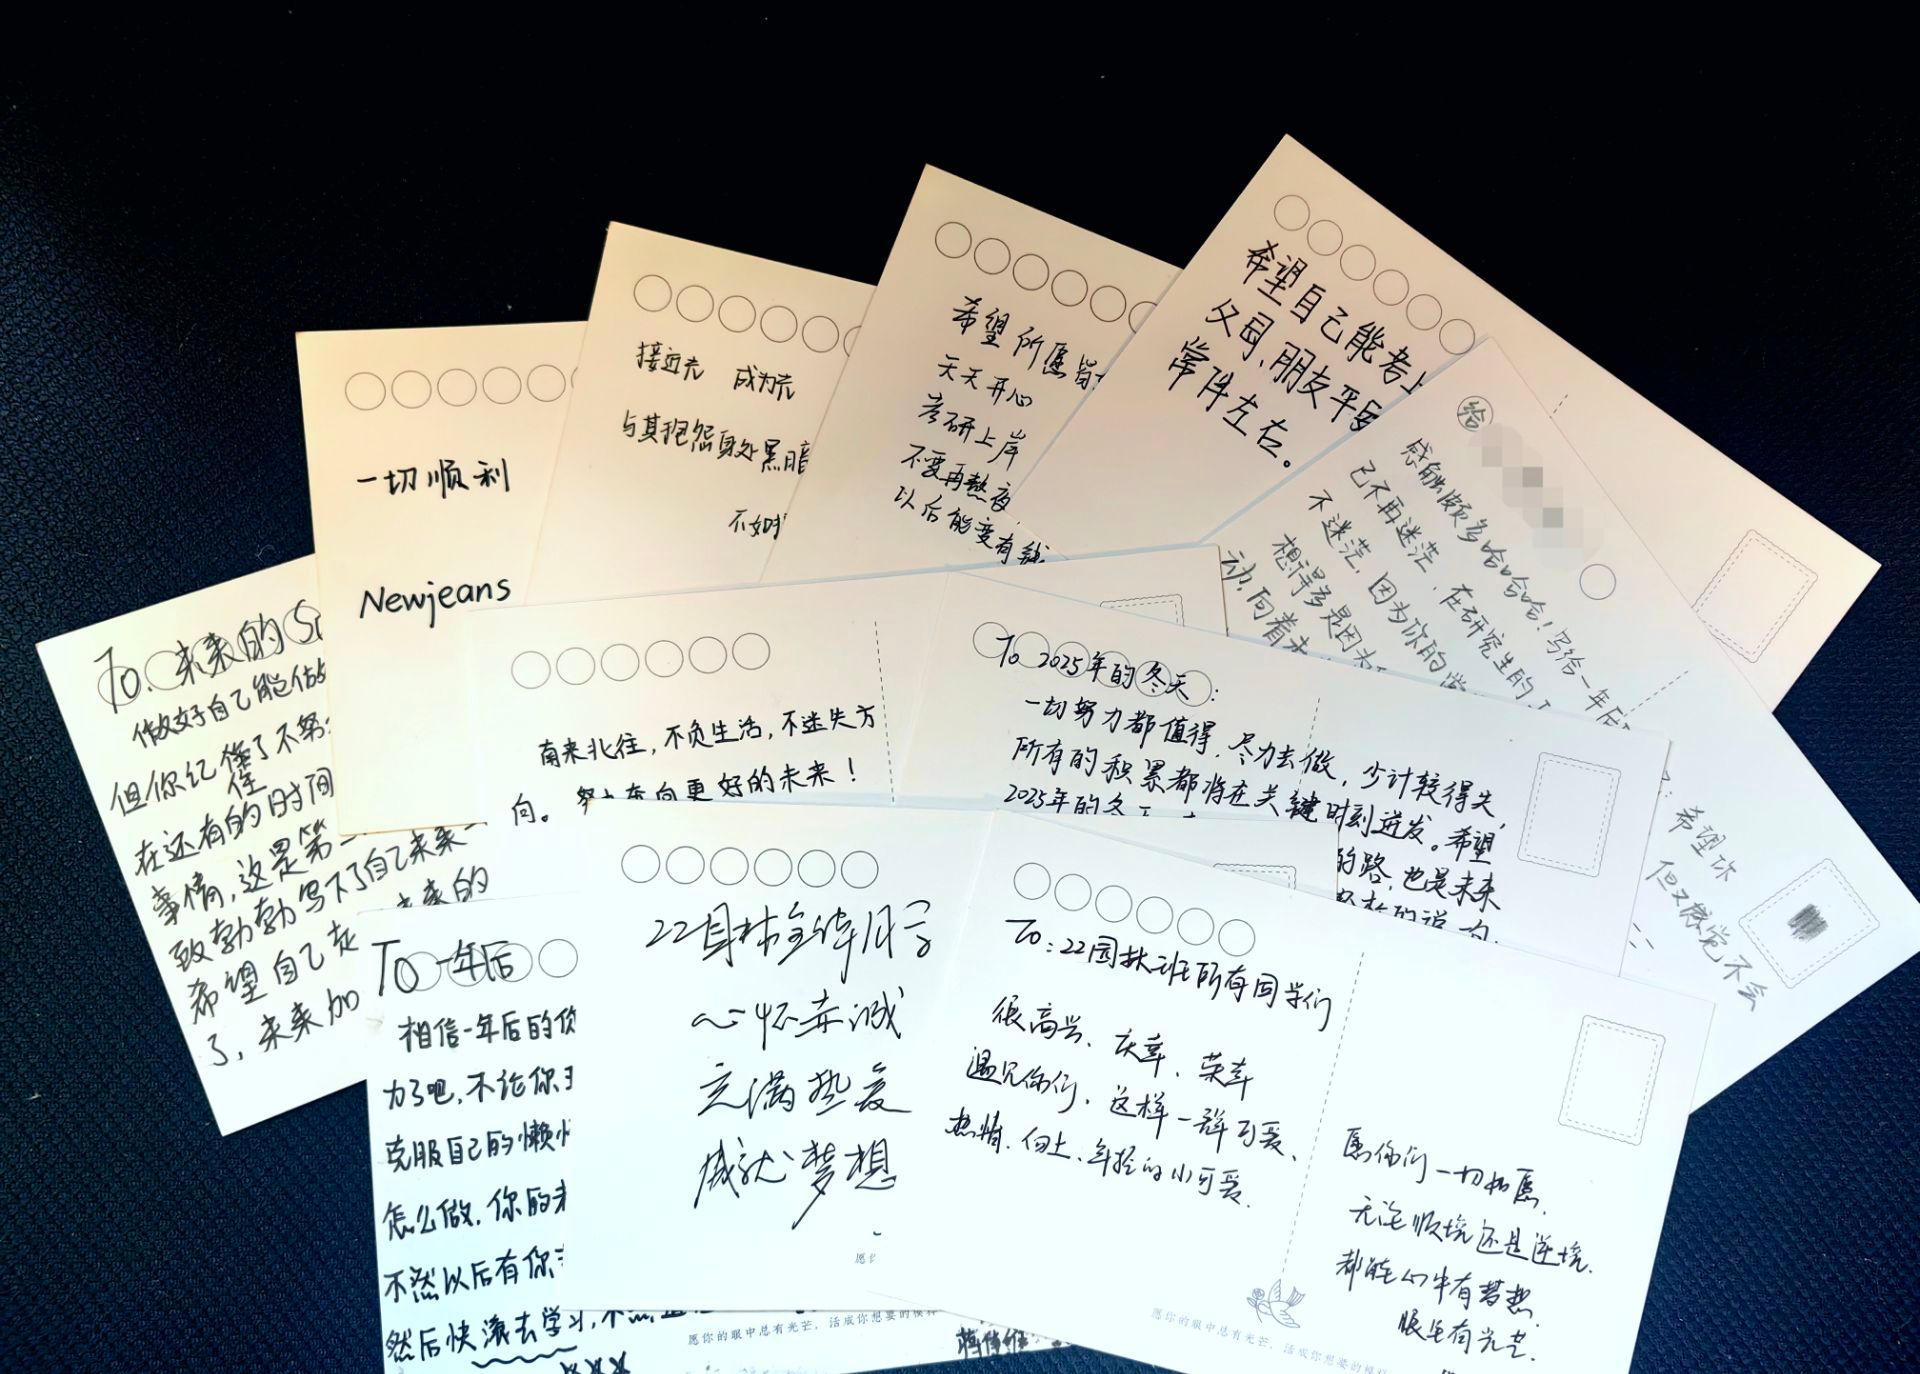 一切顺利
Newjeans
接近光 成为光
与其抱怨身处黑暗
不如
希望所愿皆
天天开心
考研上岸
不要再熬夜
以后能变有钱
希望自己能考上
父母、朋友平安
常伴左右。
给
感触颇多哈哈哈!写给一年后
已不再迷茫,在研究生的
不迷茫,因为你的
想得多是因为
动,向着未
:希望你
但又感觉不会
To.未来的
做好自己能做
但你纪懂了不努
住
在还有的时间
事情,这是第一
致勃勃写下了自己未来
希望自己 未来的
了,未来加
南来北往,不负生活,不迷失方
向。努力奔向更好的未来!
To 2025年的冬天:
一切努力都值得,尽力去做,少计较得失,
所有的积累都将在关键时刻迸发。希望
2025年的冬天
的路,也是未来
To一年后
相信一年后的你
力了吧,不论你
克服自己的懒
怎么做,你的未
不然以后有你
然后快滚去学习,不然
22园林全体同学
心怀赤诚
充满热爱
成就梦想
愿你的眼中总有光芒,活成你想要的模样
To:22园林班所有同学们
很高兴、庆幸、荣幸
遇见你们,这样一群可爱、
热情、向上、年轻的小可爱。
愿你们一切如愿,
无论顺境还是逆境,
都能心中有梦想,
眼里有光芒.
愿你的眼中总有光芒,活成你想要的模样